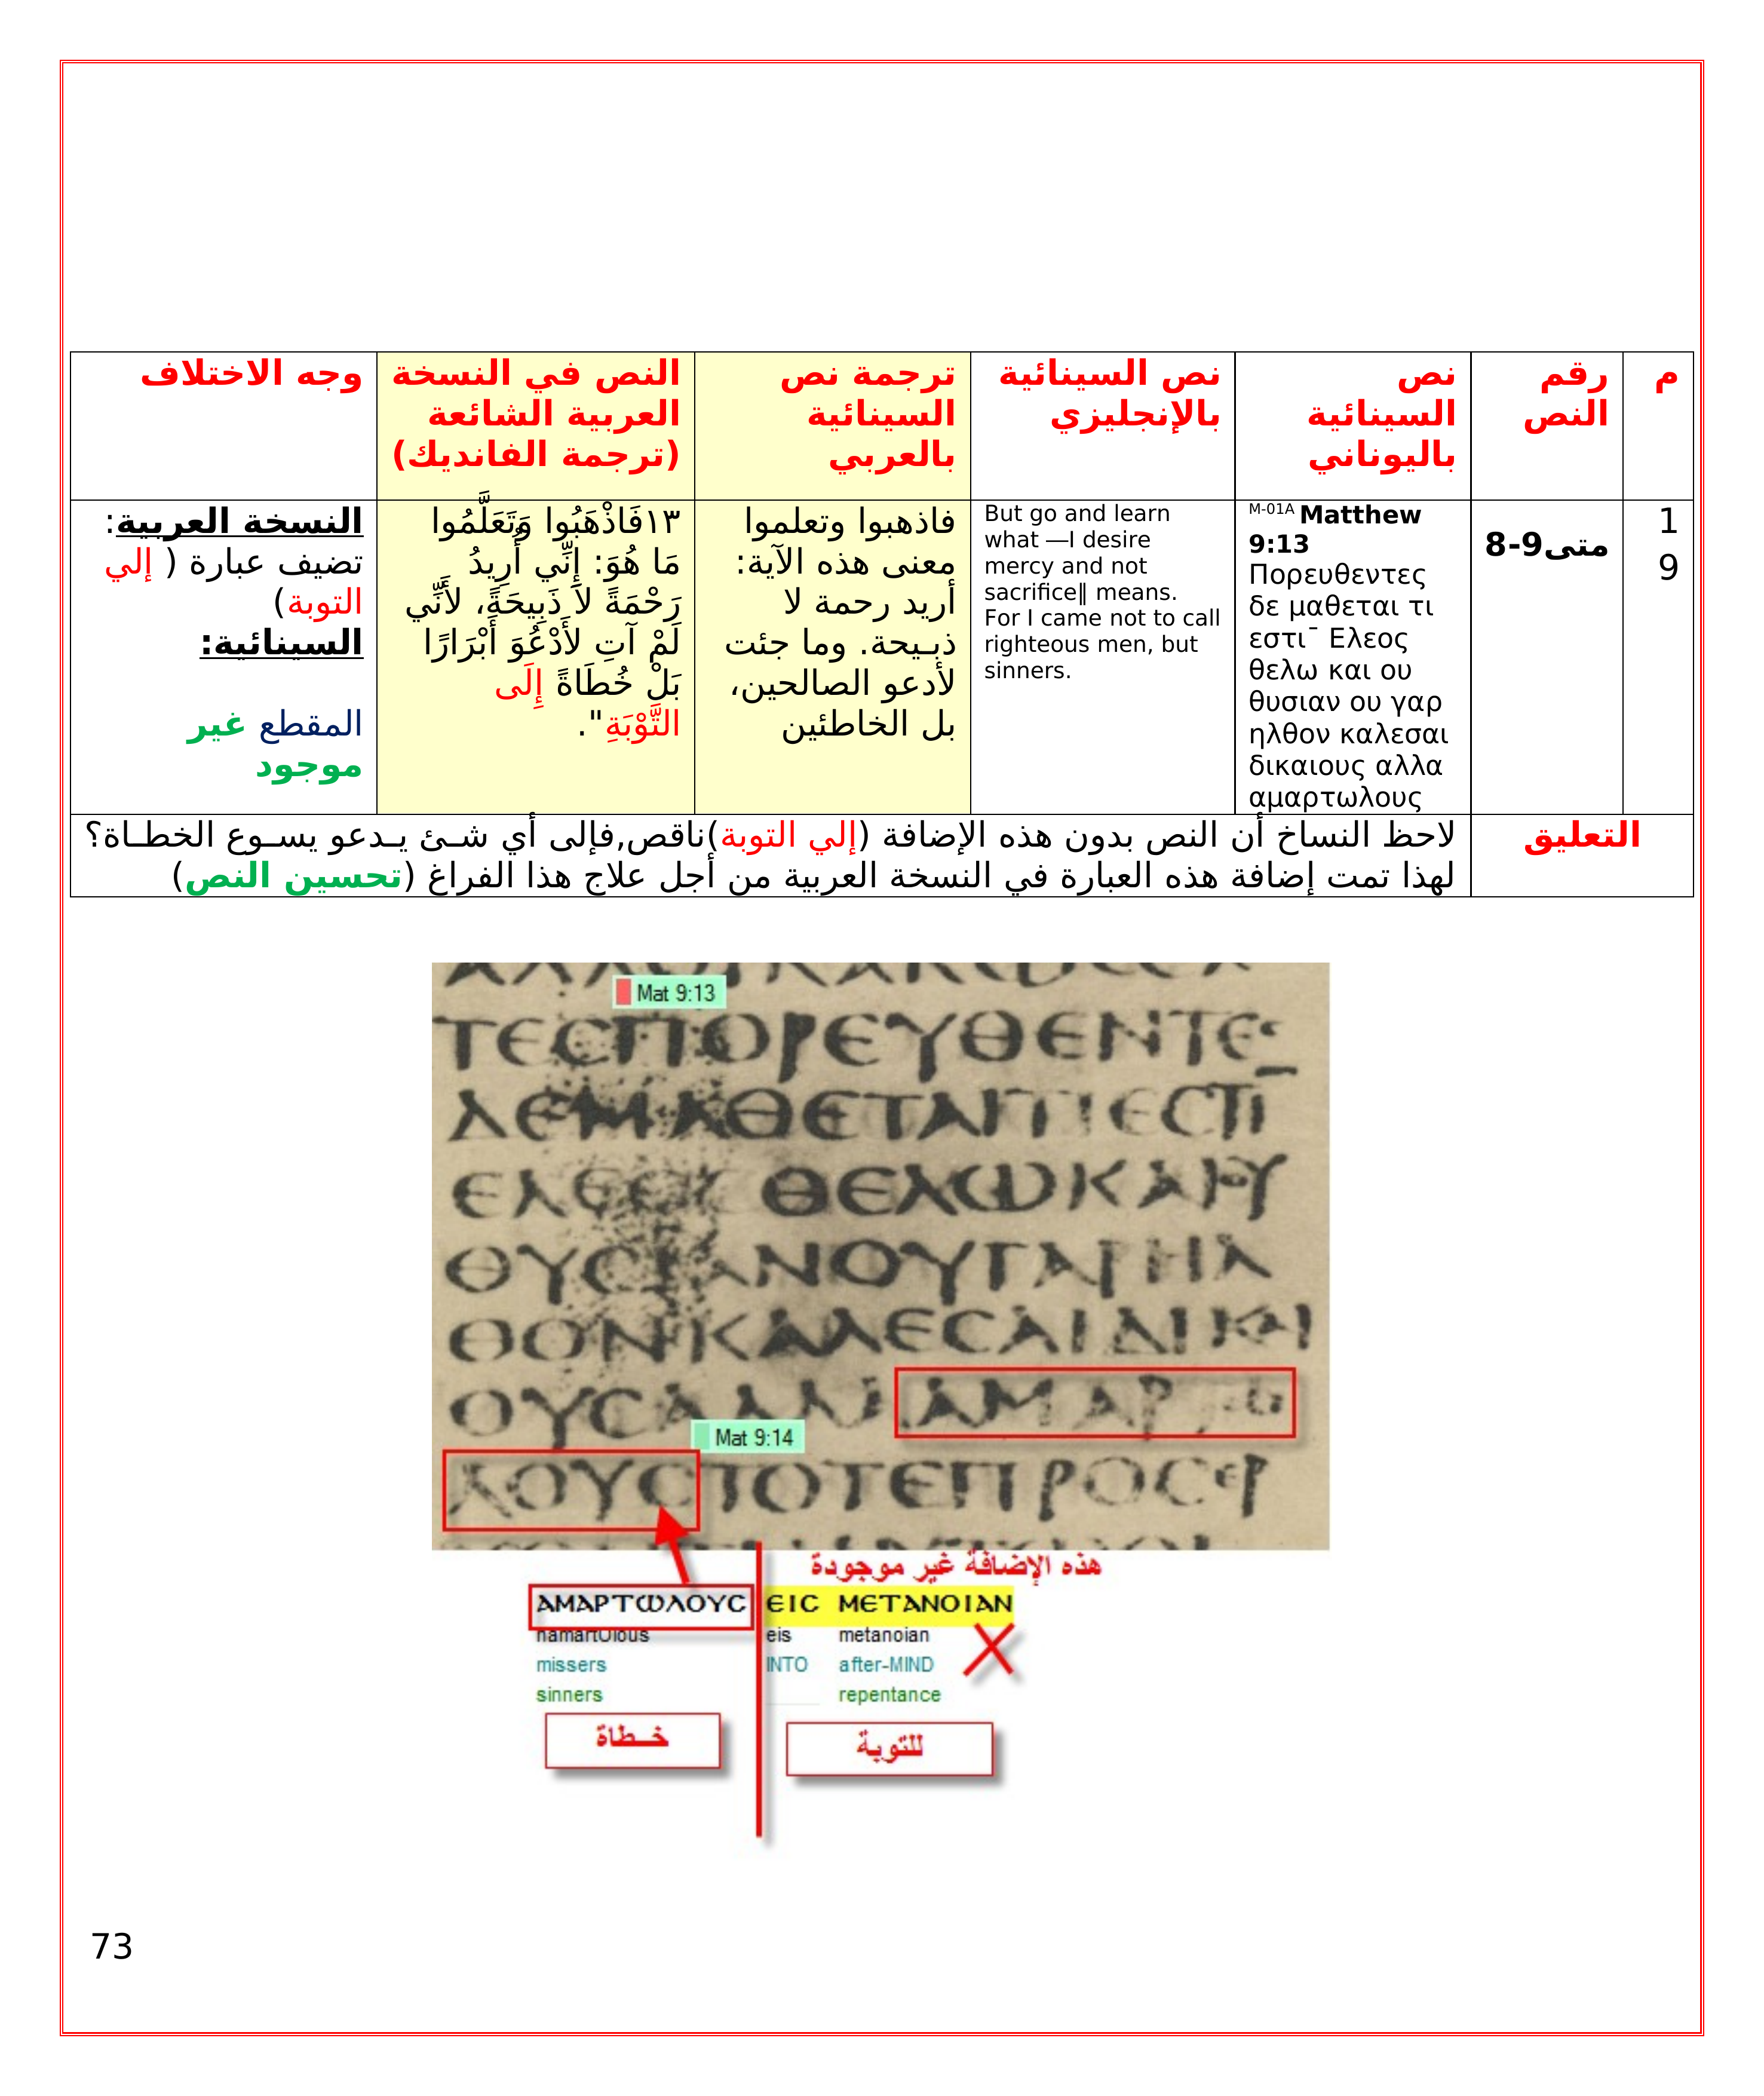 م
رقم
النص
نص
السينائية
باليوناني
نص السينائية
بالإنجليزي
ترجمة نص
السينائية
بالعربي
النص في النسخة
العربية الشائعة
(ترجمة الفانديك)
وجه الاختلاف
1
9
متى9-8
M-01A Matthew
9:13
Πορευθεντες
δε μαθεται τι
εστι¯ Ελεος
θελω και ου
θυσιαν ου γαρ
ηλθον καλεσαι
δικαιους αλλα
αμαρτωλους
But go and learn
what ―I desire
mercy and not
sacrifice‖ means.
For I came not to call
righteous men, but
sinners.
فاذهبوا وتعلموا
معنى هذه الآية:
أريد رحمة لا
ذبـيحة. وما جئت
لأدعو الصالحين،
بل الخاطئين
١٣فَاذْهَبُوا وَتَعَلَّمُوا
مَا هُوَ: إِنِّي أُرِيدُ
رَحْمَةً لاَ ذَبِيحَةً، لأَنِّي
لَمْ آتِ لأَدْعُوَ أَبْرَارًا
بَلْ خُطَاةً إِلَى
التَّوْبَةِ".
النسخة العربية:
تضيف عبارة ( إلي
التوبة)
السينائية:
المقطع غير
موجود
التعليق
لاحظ النساخ أن النص بدون هذه الإضافة (إلي التوبة)ناقص,فإلى أي شـئ يـدعو يسـوع الخطـاة؟
لهذا تمت إضافة هذه العبارة في النسخة العربية من أجل علاج هذا الفراغ (تحسين النص)
Mat 9:13
ΤΕϹΠΟΡΕΥΘΕΝΤΕϹ
ΔΕΜΑΘΕΤΑΙΤΙΕϹΤΙ¯
ΕΛΕΟϹ ΘΕΛΩΚΑΙΟΥ
ΘΥϹΙΑΝΟΥΓΑΡΗΛ
ΘΟΝΚΑΛΕϹΑΙΔΙΚΑΙ
ΟΥϹΑΛΛΑΑΜΑΡΤΩ
Mat 9:14
ΛΟΥϹΤΟΤΕΠΡΟϹΕΡ
هذه الإضافة غير موجودة
ΑΜΑΡΤΩΛΟΥϹ ΕΙϹ ΜΕΤΑΝΟΙΑΝ
hamartOlous eis metanoian
missers INTO after-MIND
sinners repentance
خـطاة
للتوبة
73